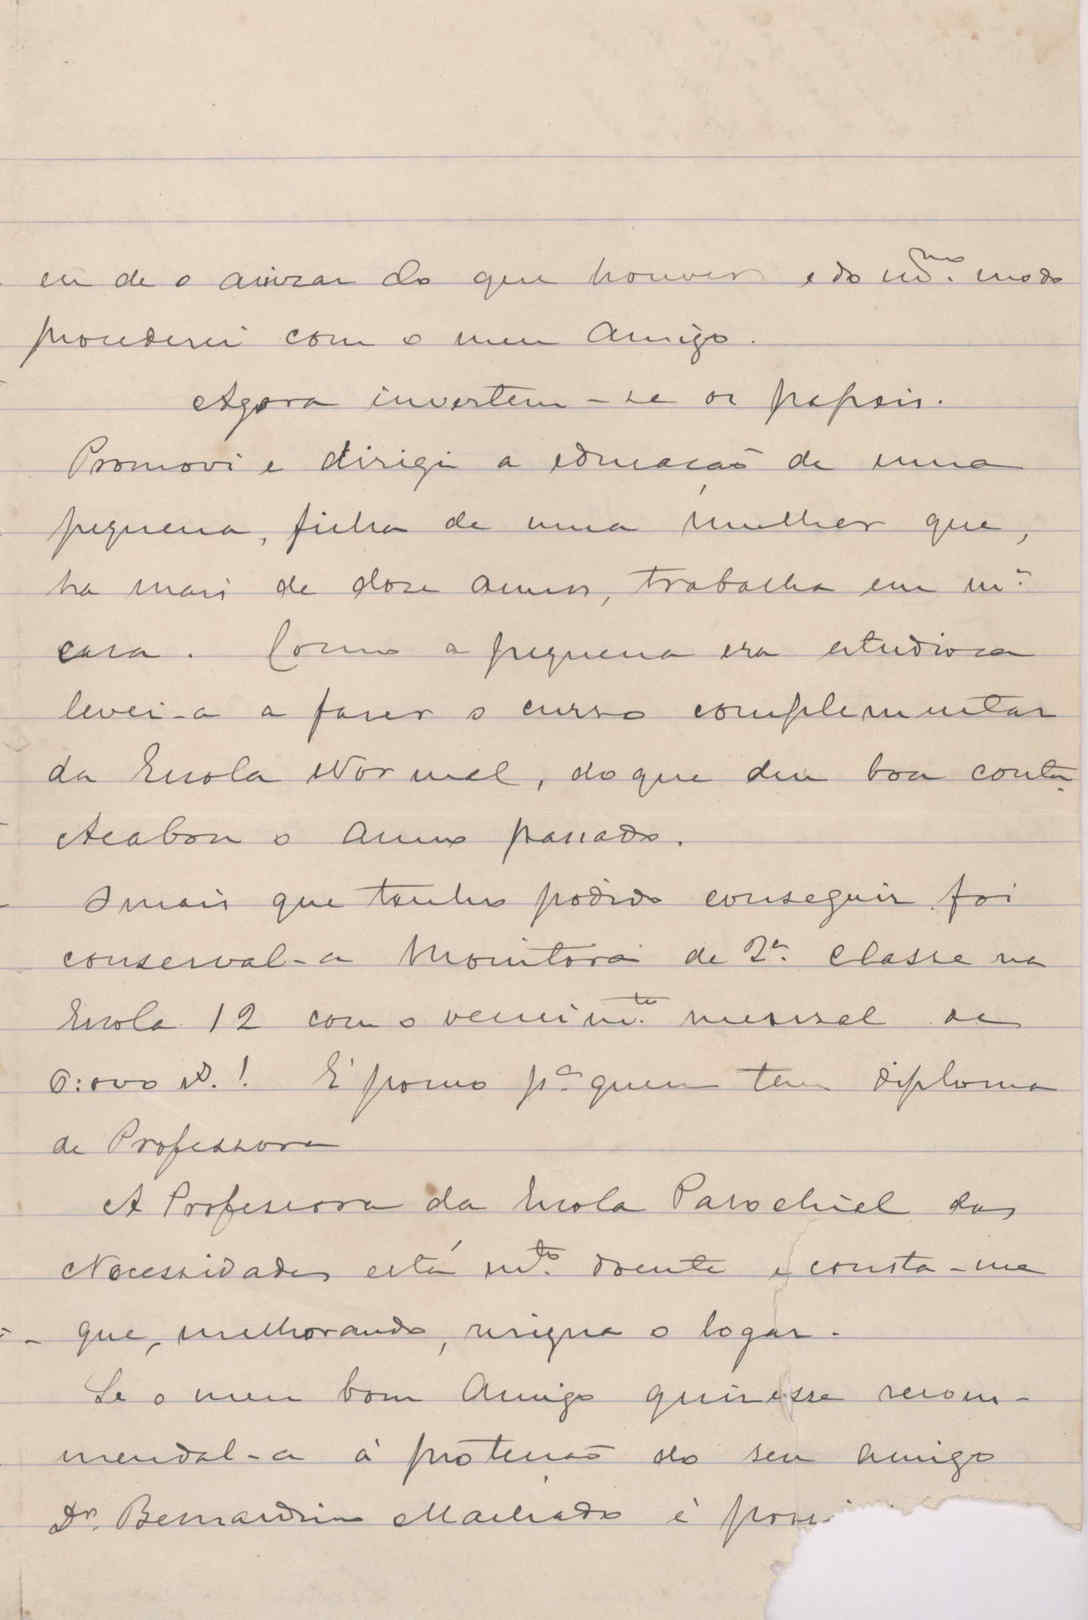 eu de o avizar do que houver e do m.mo modo
procederei com o meu Amigo.
Agora invertem-se os papeis.
Promovi e dirigi a educação de uma
pequena, filha de uma mulher que,
ha mais de doze annos, trabalha em m.a
casa. Como a pequena era estudiosa
levei-a a fazer o curso complementar
da Escola Normal, do que deu boa conta.
Acabou o anno passado.
O mais que tenho podido conseguir foi
conserval-a Monitora de 2a. classe na
Escola 12 com o vencim.to mensal de
6:000 rs.! É pouco pa quem tem diploma
de Professora
A Professora da Escola Parochial das
Necessidades está m.to doente e consta-me
que, melhorando, resigna o logar.
Se o meu bom Amigo quizesse recom-
mendal-a à protecção do seu amigo
Dr. Bernardino Machado é